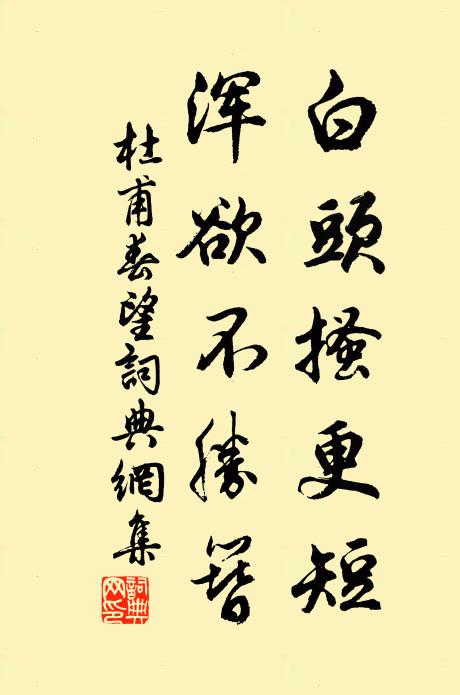 白頭搔更短
渾欲不勝簪
杜甫春望詞典網集
詞典网印